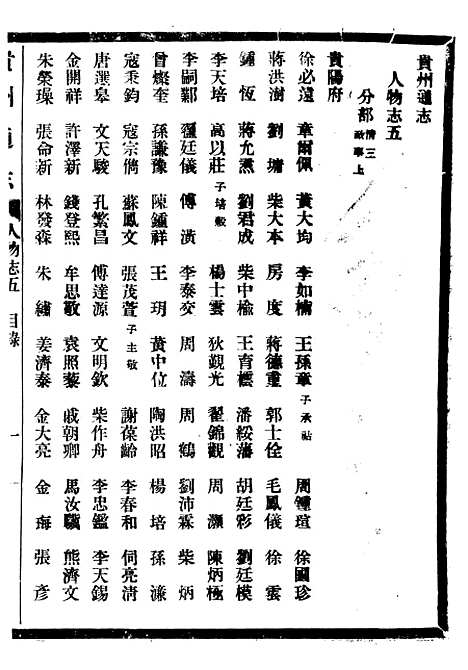 貴州通志
人物志五
分部 清三 政事上
貴陽府
徐必遠 章爾佩 黃大均 李如楠 王孫章 子承祜 周鍾瑄 徐國珍
蔣洪澍 劉墉 柴大本 房度 蔣德重 郭士佺 毛鳳儀 徐雲
鍾恆 蔣允焄 劉君成 柴中楡 王育櫄 潘綏藩 胡廷彩 劉廷模
李天培 高以莊 子培穀 楊士雲 狄覲光 翟錦觀 周灝 陳炳極
李嗣鄴 羅廷儀 傅潢 李泰交 周濤 周鶴 劉沛霖 柴炳
曾燦奎 孫謙豫 陳鍾祥 王玥 黃中位 陶洪昭 楊培 孫濂
寇秉鈞 寇宗儁 蘇鳳文 張茂萱 子主敬 謝葆齡 李春和 伺亮清
唐選皋 文天駿 孔繁昌 傅達源 文明欽 柴作舟 李忠鑑 李天錫
金開祥 許澤新 錢登熙 牟思敬 袁照藜 戚朝卿 馬汝驥 熊濟文
朱榮璪 張命新 林發森 朱繡 姜濟泰 金大亮 金海 張彥
貴州通志 人物志五 目錄 一